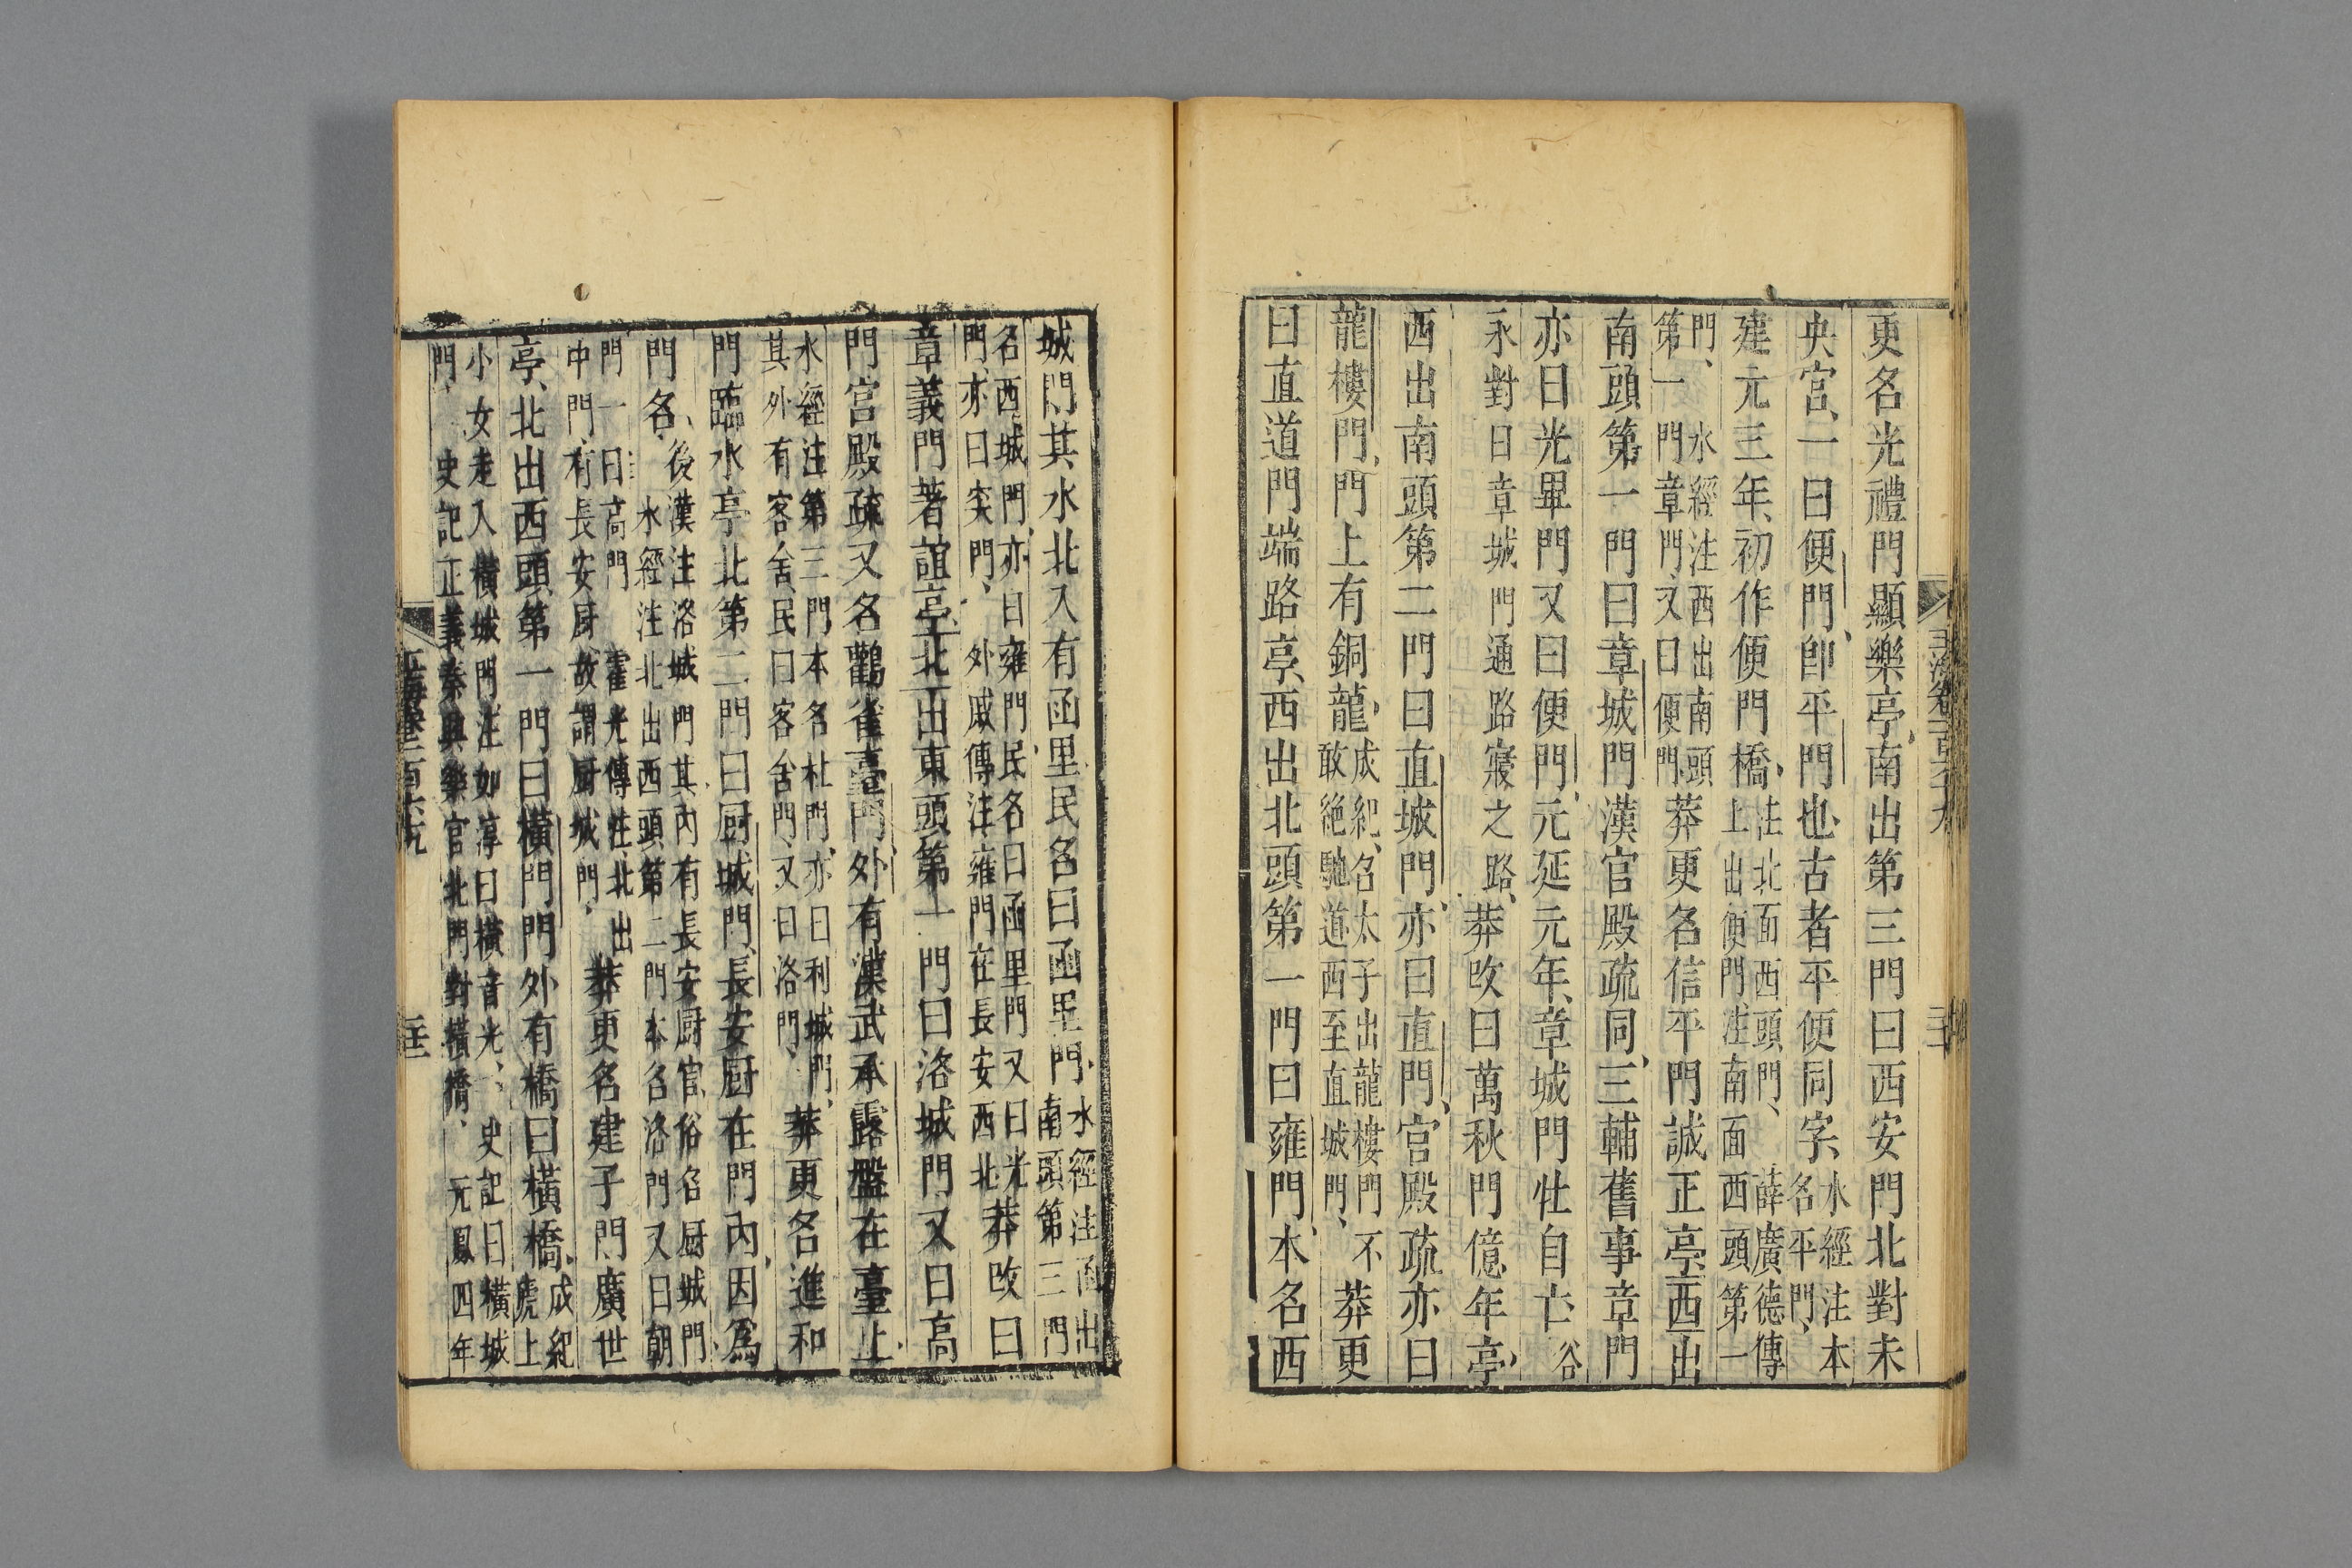 更名光禮門顯樂亭南出第三門曰西安門北對未
央宮一曰便門卽平門也古者平便同字水經注本
名平門
建元三年初作便門橋注北面西頭門薛廣德傳
上出便門注南面西頭第一
門水經注西出南頭
第一門章門又曰便門莽更名信平門誠正亭西出
南頭第一門曰章城門漢官殿疏同三輔舊事章門
亦曰光畢門又曰便門元延元年章城門牡自亡谷
永對曰章城門通路寢之路莽改曰萬秋門億年亭
西出南頭第二門曰直城門亦曰直門宮殿疏亦曰
龍樓門門上有銅龍成紀名太子出龍樓門不
敢絕馳道西至直城門莽更
曰直道門端路亭西出北頭第一門曰雍門本名西
城門其水北入有函里民名曰函里門水經注函出
南頭第三門
名西城門亦曰雍門民名曰函里門又曰光
門亦曰突門外戚傳注雍門在長安西北莽改曰
章義門著誼亭北出東頭第一門曰洛城門又曰高
門宮殿疏又名鸛雀臺門外有漢武承露盤在臺上
水經注第三門本名杜門亦曰利城門
其外有客舍民曰客舍門又曰洛門莽更名進和
門臨水亭北第二門曰厨城門長安厨在門內因爲
門名後漢注洛城門其內有長安厨官俗名厨城門
水經注北出西頭第二門本名洛門又曰朝
門一曰高門霍光傳注北出
中門有長安厨故謂厨城門莽更名建子門廣世
亭北出西頭第一門曰橫門門外有橋曰橫橋成紀
虒上
小女走入橫城門注如淳曰橫音光史記曰橫城
門史記正義秦興樂宮北門對橫橋元鳳四年